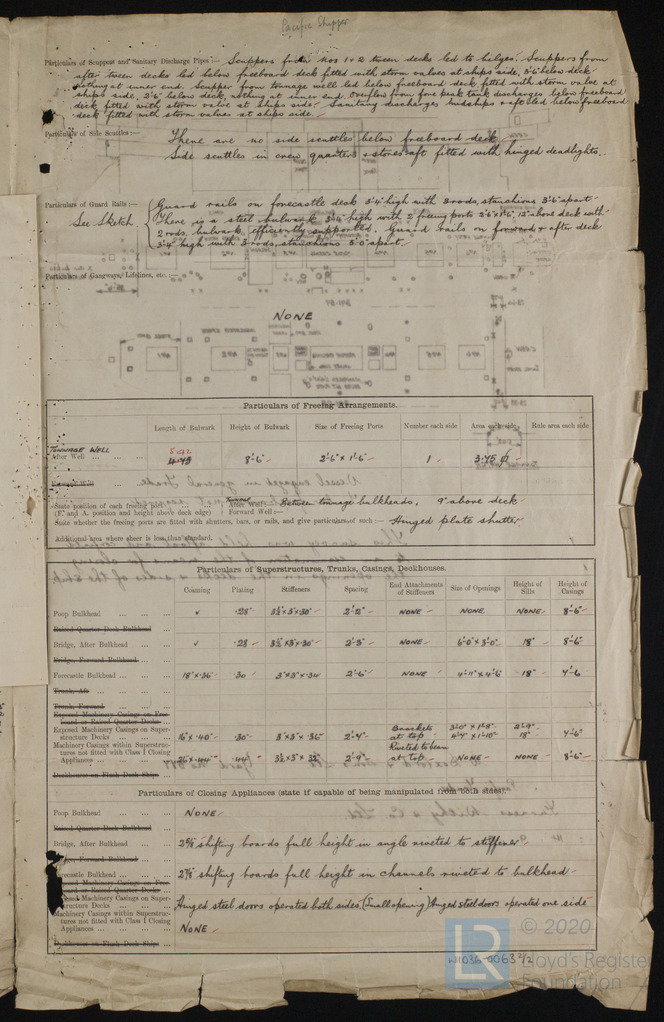 Pacific Shipper
Particulars of Scuppers and Sanitary Discharge Pipes:— Scuppers from nos 1 + 2 tween decks led to bilges. Scuppers from
after tween decks led below freeboard deck fitted with storm valves at ships side, 3'6" below deck
nothing at inner end. Scupper from tonnage well led below freeboard deck fitted with storm valve at
ships side, 2'6" below deck, nothing at inner end. Overflow from fore peak tank discharges below freeboard
deck fitted with storm valve at ships side. Sanitary discharges midships & aft led below freeboard
deck fitted with storm valves at ships side.
Particulars of Side Scuttles:— There are no side scuttles below freeboard deck
Side scuttles in crew quarters & stores aft fitted with hinged deadlights.
Particulars of Guard Rails:— Guard rails on forecastle deck 3'4" high with 3 rods, stanchions 3'6" apart
See Sketch. There is a steel bulwark 3'4" high with 2 freeing ports 2'6" x 1'6", 12" above deck with
2 rods, bulwark efficiently supported. Guard rails on forward & after deck
3'4" high with 3 rods, stanchions 5'0" apart.
Particulars of Gangways, Lifelines, etc.:—
NONE
Particulars of Freeing Arrangements.
Length of Bulwark Height of Bulwark Size of Freeing Ports Number each side Area each side Rule area each side
TONNAGE WELL
After Well 8'-6" 2'-6" x 1'-6" 1 3.75
Forward Well
State position of each freeing port Tonnage After Well:— Between tonnage bulkheads, 9" above deck
(F. and A. position and height above deck edge) Forward Well:—
State whether the freeing ports are fitted with shutters, bars, or rails, and give particulars of such:— Hinged plate shutter
Additional area where sheer is less than standard.
Particulars of Superstructures, Trunks, Casings, Deckhouses.
Coaming Plating Stiffeners Spacing End Attachments of Stiffeners Size of Openings Height of Sills Height of Casings
Poop Bulkhead ✓ .28 3½"x3"x.30 2'-2" NONE NONE NONE 8'-6"
Raised Quarter Deck Bulkhead
Bridge, After Bulkhead ✓ .28 3½"x3"x.30 2'-3" NONE 6'0" x 3'0" 18" 8'-6"
Bridge, Forward Bulkhead
Forecastle Bulkhead 18" x .36 .30 3"x3"x.34 2'-6" NONE 4'-11" x 4'-6" 18" 7'-6
Trunk, Aft
Trunk, Forward
Exposed Machinery Casings on Freeboard or Raised Quarter Decks
Exposed Machinery Casings on Superstructure Decks 16" x .40 .30 3"x3"x.36 2'-4" Brackets at top 18" 7'-6"
Machinery Casings within Superstructures not fitted with Class I Closing Appliances 26 x .44 .44 2'-9" Riveted to beam at top NONE NONE 8'-6"
Deckhouses on Flush Deck Ships
Particulars of Closing Appliances (state if capable of being manipulated from both sides).
Poop Bulkhead NONE
Raised Quarter Deck Bulkhead
Bridge, After Bulkhead 2⅝" shifting boards full height in angle riveted to stiffener
Bridge, Forward Bulkhead
Forecastle Bulkhead 2⅝" shifting boards full height in channels riveted to bulkhead
Exposed Machinery Casings on Freeboard or Raised Quarter Decks
Exposed Machinery Casings on Superstructure Decks Hinged steel doors operated both sides. (Small opening) Hinged steel doors operated one side
Machinery Casings within Superstructures not fitted with Class I Closing Appliances NONE
Deckhouses on Flush Deck Ships
W1036-0063 2/2
LR
© 2020
Lloyd's Register
Foundation